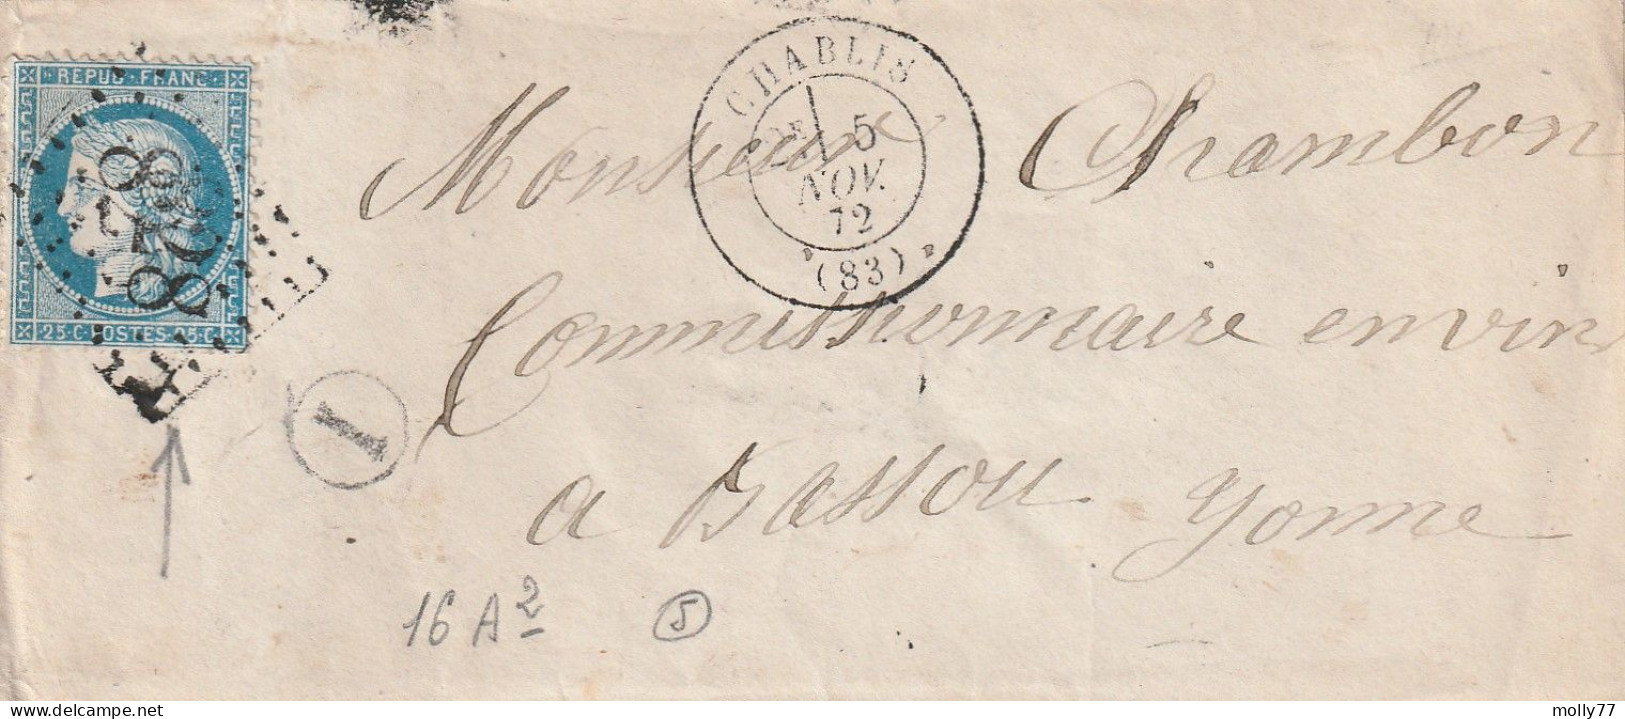 REPUB·FRANC·
25·C·POSTES·25·C·
CHABLIS
2E
5
NOV.
72
(83)
Monsieur Chambon
Commissionnaire en vin
a Bassou Yonne
I
16 A2
5
molly77